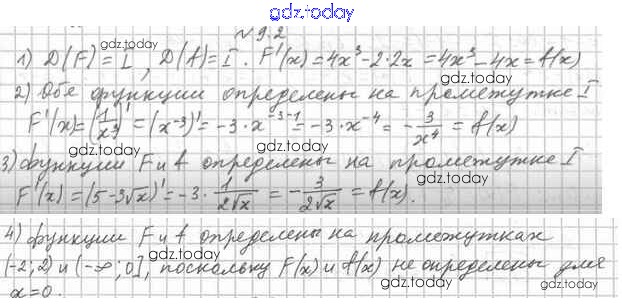 gdz.today
№ 9.2
1) D(F) = I, D(f) = I. F'(x) = 4x³ - 2·2x = 4x³ - 4x = f(x)
gdz.today
gdz.today
2) Обе функции определены на промежутке I
gdz.today
F'(x) = (1/x³)' = (x⁻³)' = -3·x⁻³⁻¹ = -3·x⁻⁴ = -3/x⁴ = f(x)
gdz.today
gdz.today
3) функции F и f определены на промежутке I
gdz.today
F'(x) = (5-3√x)' = -3·1/(2√x) = -3/(2√x) = f(x).
gdz.today
gdz.today
4) функции F и f определены на промежутках
gdz.today
(-2;2) и (-∞;0], поскольку F(x) и f(x) не определены для
gdz.today
gdz.today
x=0.